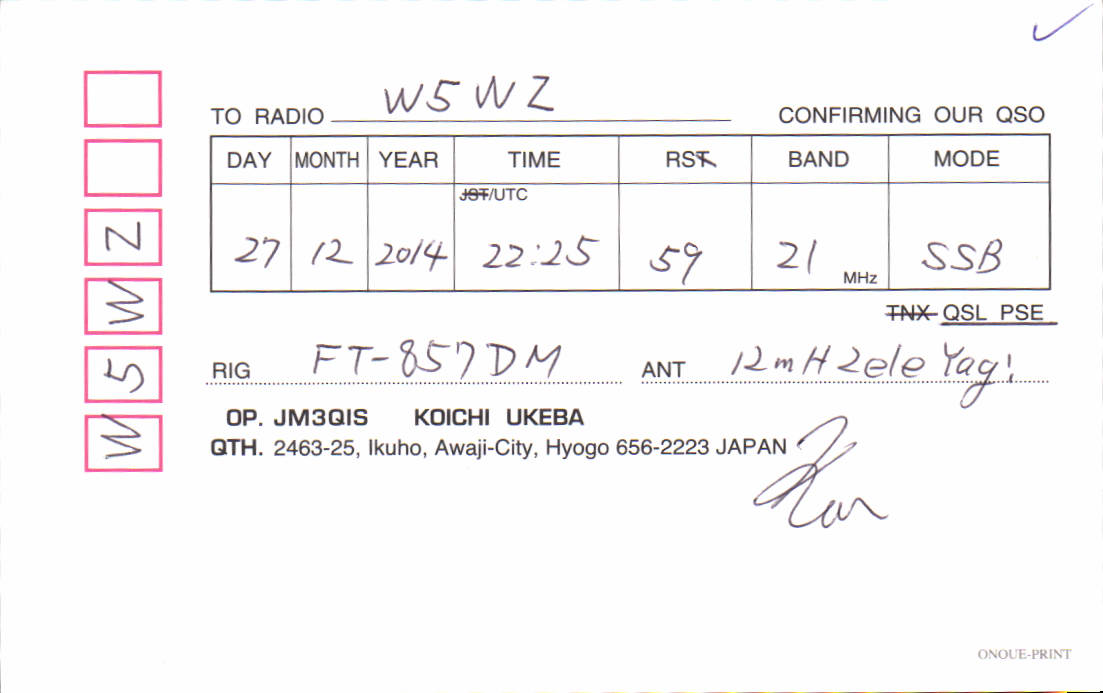 TO RADIO W5WZ CONFIRMING OUR QSO
DAY MONTH YEAR TIME RST BAND MODE
JST/UTC
27 12 2014 22:25 59 21 MHz SSB
TNX QSL PSE
RIG FT-857DM ANT 12mH 2ele Yagi
OP. JM3QIS KOICHI UKEBA
QTH. 2463-25, Ikuho, Awaji-City, Hyogo 656-2223 JAPAN
W5WZ
ONOUE-PRINT